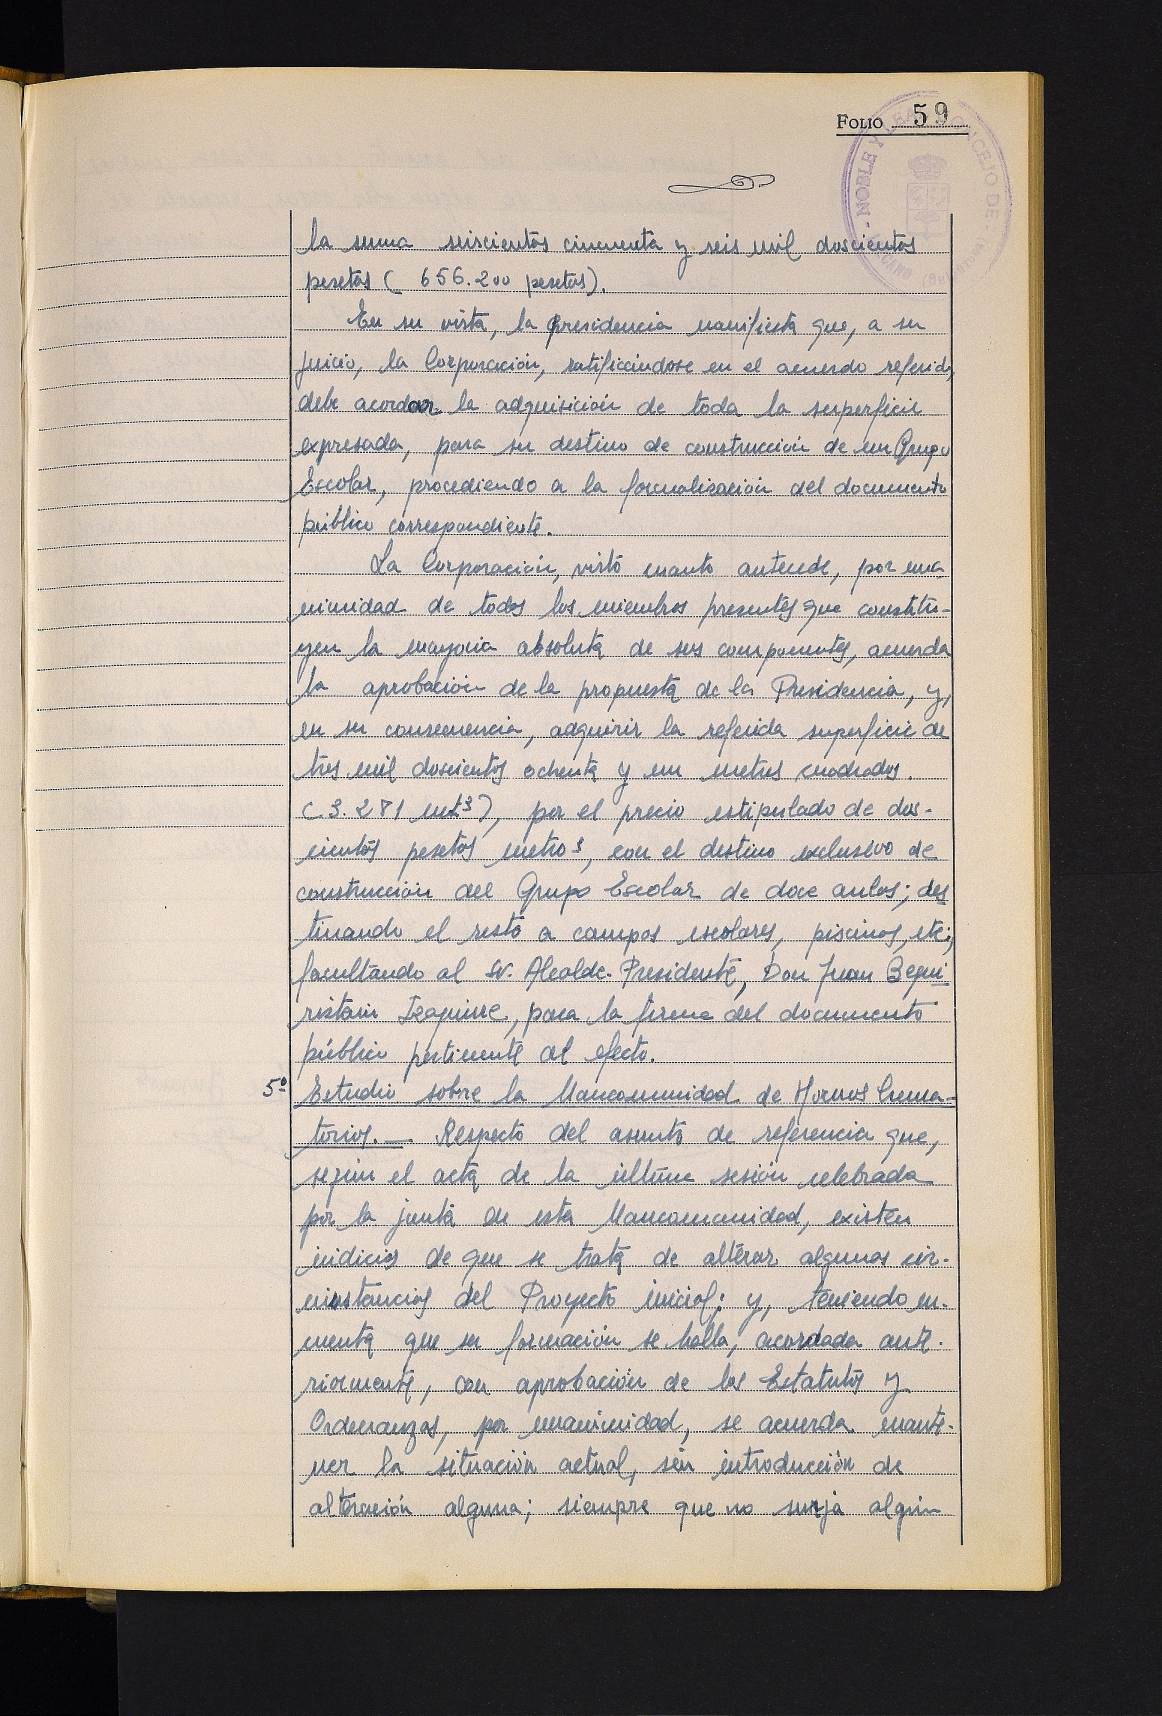 FOLIO 59
NOBLE Y LEAL CONCEJO DE
la suma seiscientas cincuenta y seis mil doscientas
pesetas ( 656.200 pesetas).
En su vista, la presidencia manifiesta que, a su
juicio, la Corporación, ratificándose en el acuerdo referido,
debe acordar la adquisición de toda la superficie
expresada, para su destino de construcción de un Grupo
Escolar, procediendo a la formalización del documento
público correspondiente.
La Corporación, visto cuanto antecede, por una
nimidad de todos los miembros presentes que constitu-
yen la mayoria absoluta de sus componentes, acuerda
la aprobación de la propuesta de la Presidencia, y,
en su consecuencia, adquirir la referida superficie de
tres mil doscientos ochenta y un metros cuadrados.
(3.281 mt²), por el precio estipulado de dos-
cientas pesetas metro², con el destino exclusivo de
construcción del Grupo Escolar de doce aulas; des
tinando el resto a campos escolares, piscinas, etc;
facultando al Sr. Alcalde-Presidente, Don Juan Begui
ristain Izaguirre, para la firma del documento
público pertinente al efecto.
5º Estudio sobre la Mancomunidad de Hornos Crema-
torios.— Respecto del asunto de referencia que,
según el acta de la última sesión celebrada
por la junta de esta Mancomunidad, existen
indicios de que se trata de alterar algunas cir-
cunstancias del Proyecto inicial; y, teniendo en-
cuenta que su formación se halla, acordada ante-
riormente, con aprobación de los Estatutos y
Ordenanzas, por unanimidad, se acuerda mante-
ner la situación actual, sin introducción de
alteración alguna; siempre que no surja algún